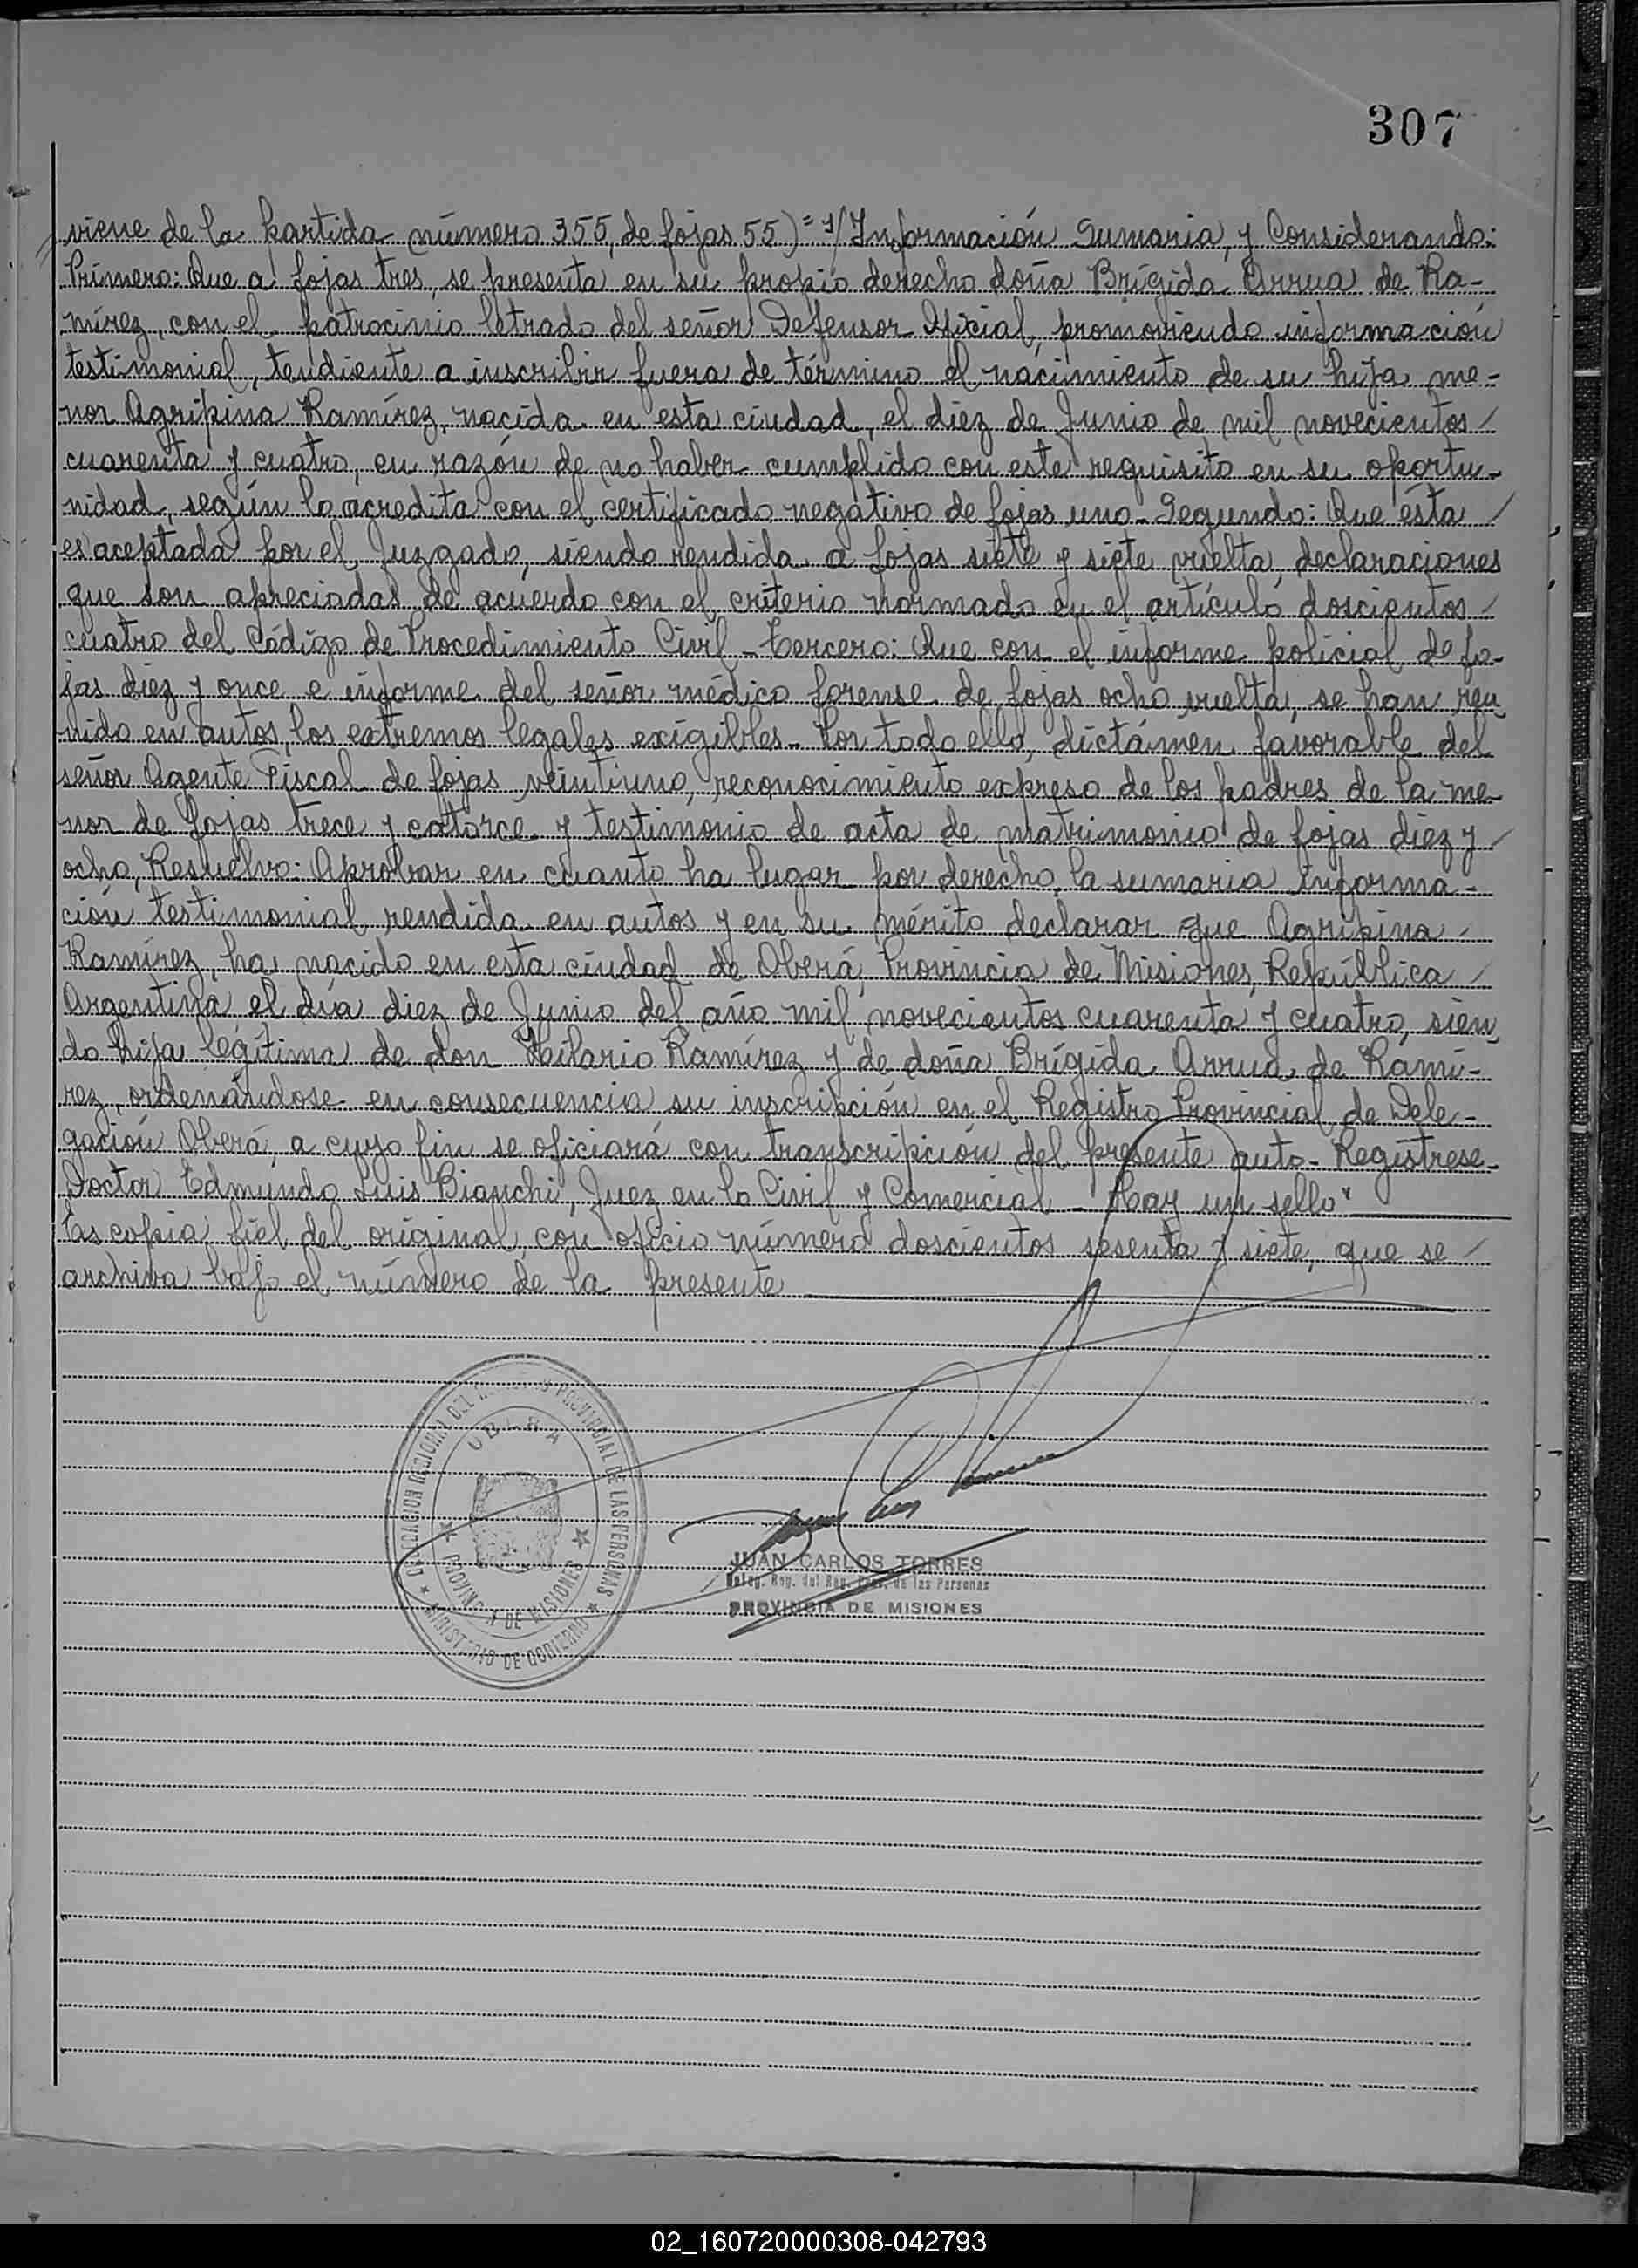 307
viene de la partida número 355, de fojas 55) = "/Información Sumaria, y Considerando:
Primero: Que a fojas tres, se presenta en su propio derecho doña Brígida Arrua de Ra-
mírez, con el patrocinio letrado del señor Defensor Oficial, promoviendo información
testimonial, tendiente a inscribir fuera de término el nacimiento de su hija me-
nor Agripina Ramírez, nacida en esta ciudad, el diez de Junio de mil novecientos /
cuarenta y cuatro, en razón de no haber cumplido con este requisito en su oportu-
nidad, según lo acredita con el certificado negativo de fojas uno- Segundo: Que ésta /
es aceptada por el Juzgado, siendo rendida a fojas siete y siete vuelta, declaraciones
que son apreciadas de acuerdo con el criterio normado en el artículo doscientos /
cuatro del Código de Procedimiento Civil - Tercero: Que con el informe policial de fo-
jas diez y once e informe del señor médico forense de fojas ocho vuelta, se han reu
nido en autos, los extremos legales exigibles- Por todo ello, dictámen favorable del
señor Agente Fiscal de fojas veintiuno, reconocimiento expreso de los padres de la me-
nor de fojas trece y catorce y testimonio de acta de matrimonio de fojas diez y /
ocho, Resuelvo: Aprobar en cuanto ha lugar por derecho, la sumaria informa-
ción testimonial rendida en autos y en su mérito declarar que Agripina /
Ramírez, ha nacido en esta ciudad de Oberá, Provincia de Misiones, República /
Argentina el día diez de Junio del año mil novecientos cuarenta y cuatro, sien
do hija legítima de don Hilario Ramírez y de doña Brígida Arrua de Ramí-
rez, ordenándose en consecuencia su inscripción en el Registro Provincial de Dele-
gación Oberá, a cuyo fin se oficiará con transcripción del presente auto- Regístrese-
Doctor Edmundo Luis Bianchi, Juez en lo Civil y Comercial - Hay un sello"
Es copia fiel del original, con oficio número doscientos sesenta y siete, que se /
archiva bajo el número de la presente
DELEGACION REGIONAL DEL REGISTRO PROVINCIAL DE LAS PERSONAS
OBERA
PROVINCIA DE MISIONES
MINISTERIO DE GOBIERNO
JUAN CARLOS TORRES
Deleg. Reg. del Reg. Prov. de las Personas
PROVINCIA DE MISIONES
02_160720000308-042793